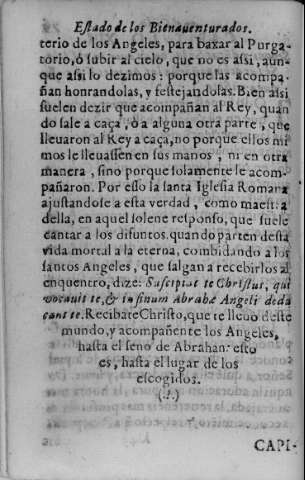 Eſtado de los Bienauenturados.
terio de los Angeles, para baxar al Purga-
torio, ó ſubir al cielo, que no es aſsi, aun-
que aſsi lo dezimos: porque las acompa-
ñan honrandolas, y feſtejandolas. Bien aſsi
ſuelen dezir que acompañan al Rey, quan
do ſale a caça, ò a alguna otra parte, que
lleuaron al Rey a caça, no porque ellos miſ
mos le lleuaſſen en ſus manos, ni en otra
manera, ſino porque ſolamente le acom-
pañaron. Por eſſo la ſanta Igleſia Romana
ajuſtandoſe a eſta verdad, como maeſtra
della, en aquel ſolene reſponſo, que ſuele
cantar a los difuntos. quando parten deſta
vida mortal a la eterna, combidando a los
ſantos Angeles, que ſalgan a recebirlos al
enquentro, dize: Suſcipiat te Chriſtus, qui
vocauit te, & in ſinum Abrahæ Angeli dedu
cant te. Recibate Chriſto, que te lleuo deſte
mundo, y acompañente los Angeles,
haſta el ſeno de Abrahan: eſto
es, haſta el lugar de los
eſcogidos.
(.?.)
CAPI-